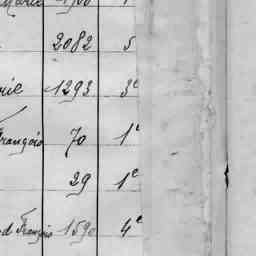 2082 5
1293 3e
François 70 1e
29 1e
François 1590 4e